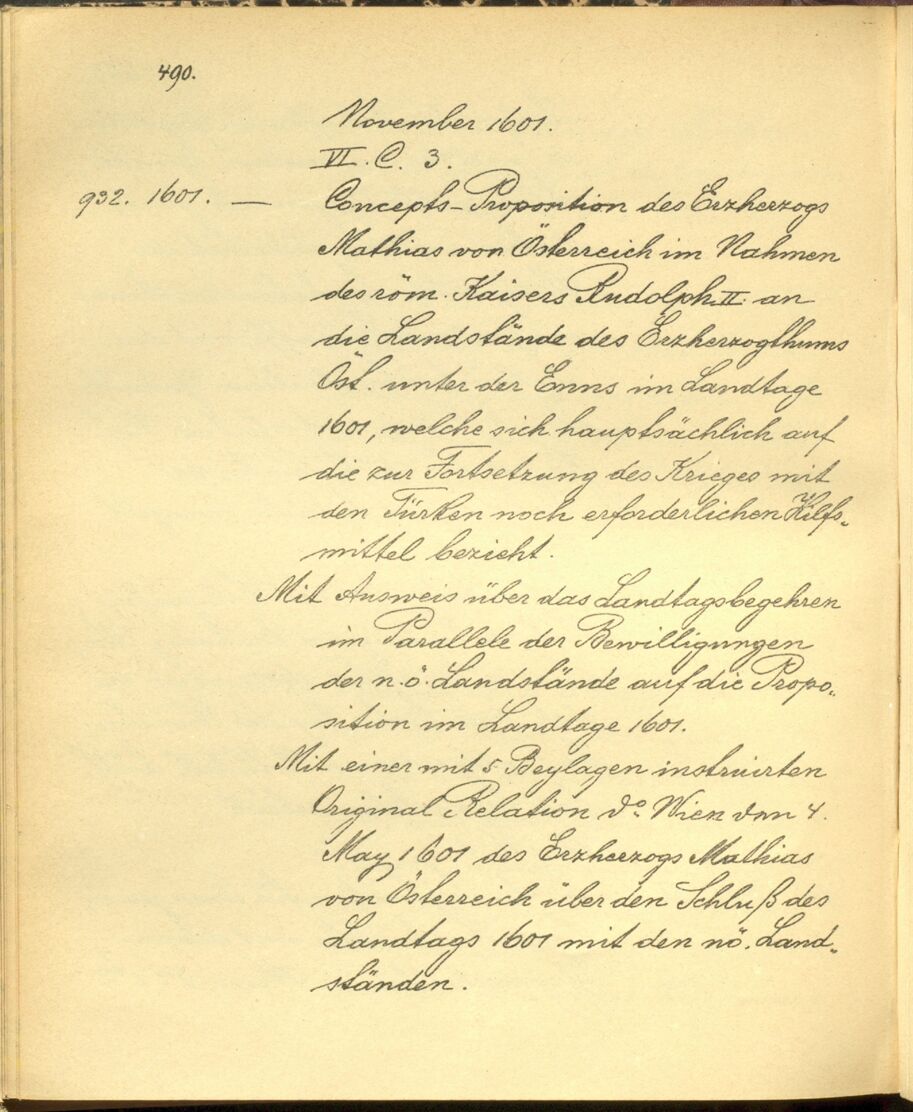 490.
November 1601.
VI. C. 3.
932. 1601. — Concepts-Proposition des Erzherzogs
Mathias von Österreich im Nahmen
des röm. Kaisers Rudolph II. an
die Landstände des Erzherzogthums
Öst. unter der Enns im Landtage
1601, welche sich hauptsächlich auf
die zur Fortsetzung des Krieges mit
den Türken noch erforderlichen Hilfs-
mittel bezieht.
Mit Ausweis über das Landtagsbegehren
im Parallele der Bewilligungen
der n.ö. Landstände auf die Propo-
sition im Landtage 1601.
Mit einer mit 5 Beylagen instruirten
Original Relation do. Wien den 4.
May 1601 des Erzherzogs Mathias
von Österreich über den Schluß des
Landtags 1601 mit den nö. Land-
ständen.